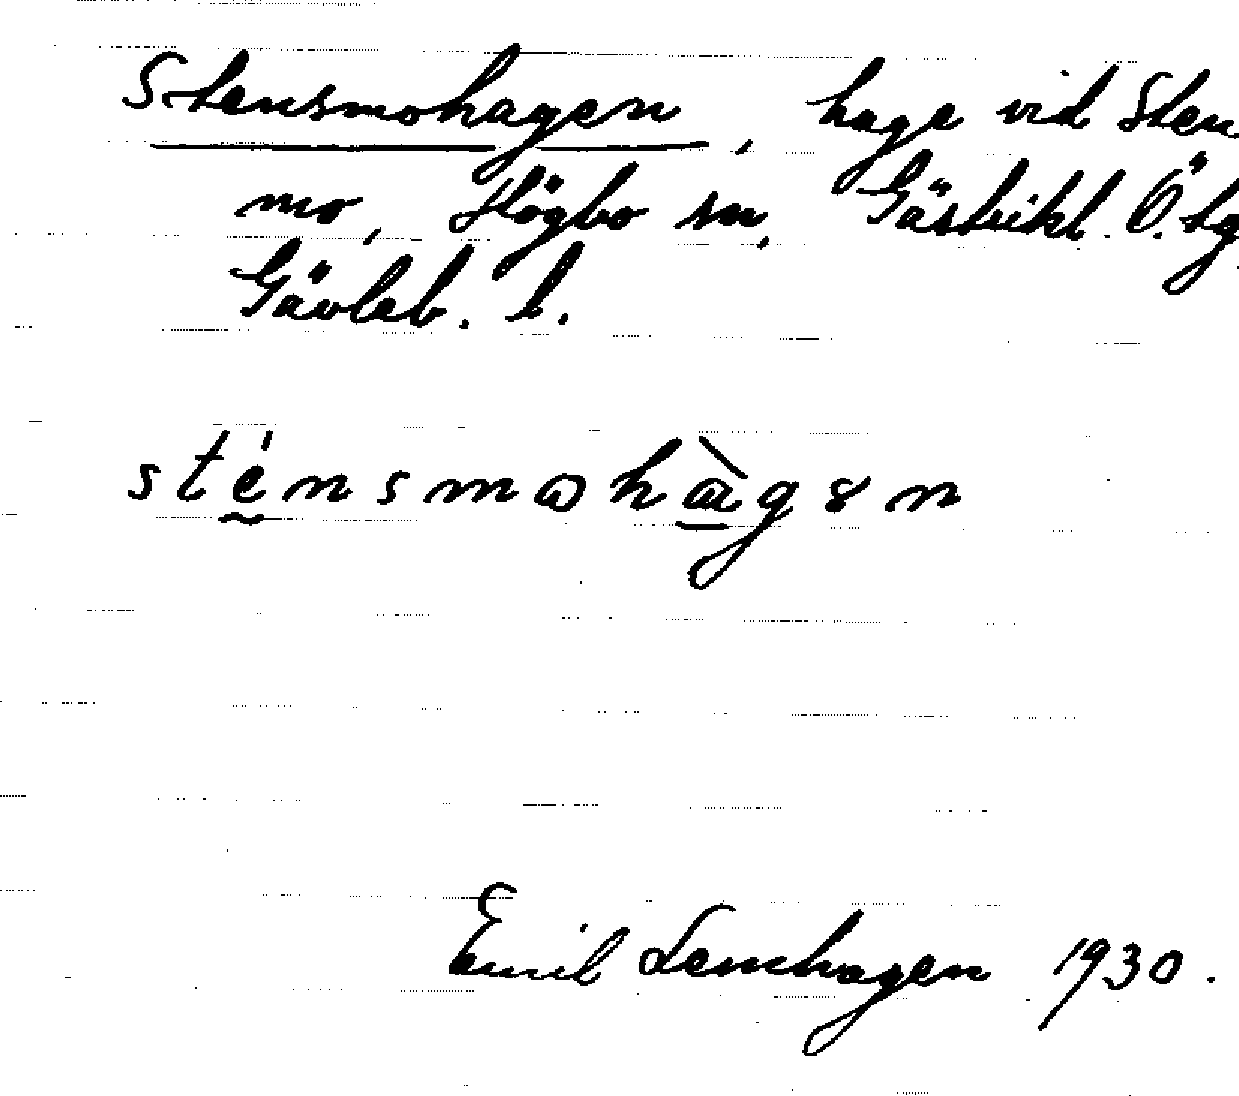 Stensmohagen, hage vid Sten
mo, Högbo sn, Gästrikl. Ö. tg
Gävleb. l.
sténsmωhὰgən
Emil Lemhagen 1930.